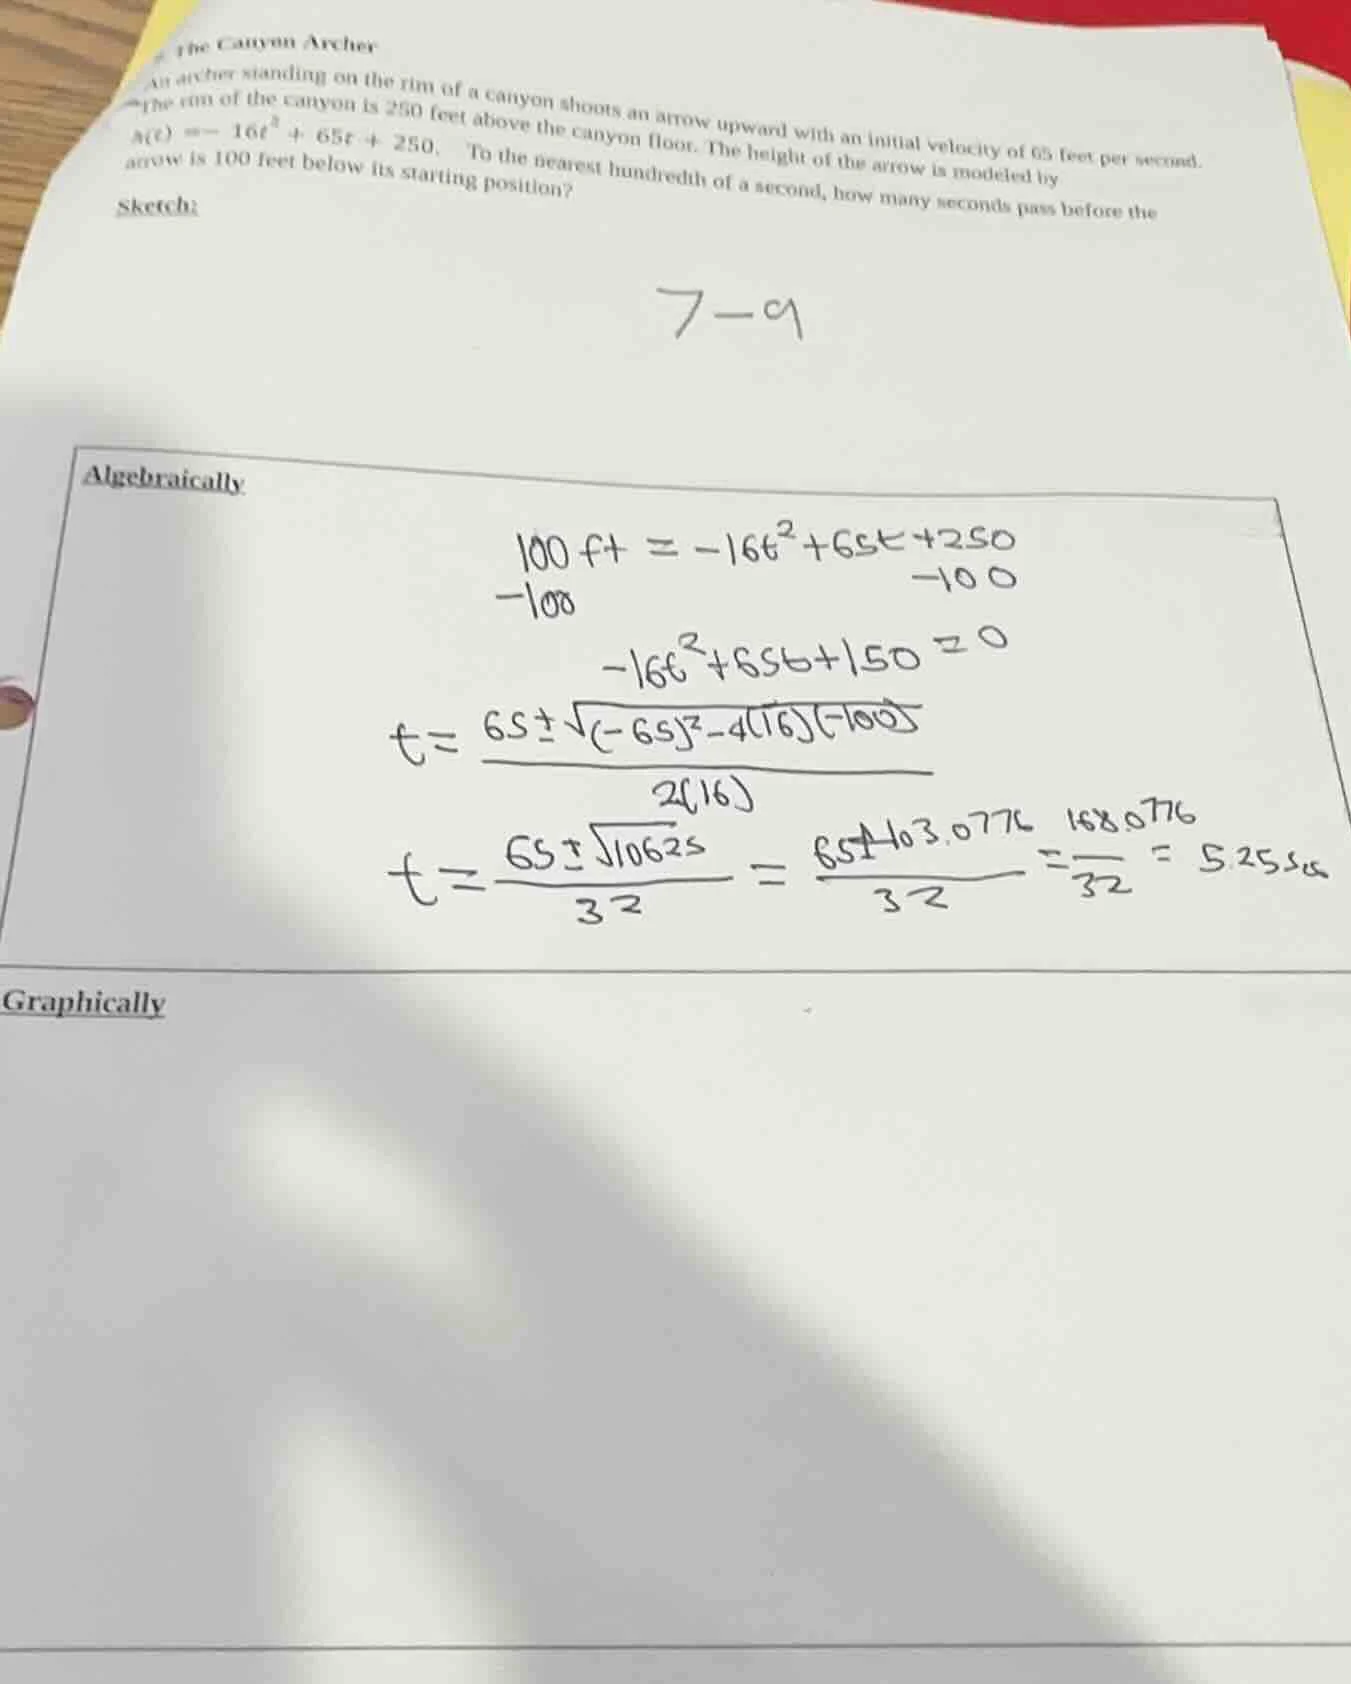 The Canyon Archer
An archer standing on the rim of a canyon shoots an arrow upward with an initial velocity of 65 feet per second.
The rim of the canyon is 250 feet above the canyon floor. The height of the arrow is modeled by
h(t) = − 16t² + 65t + 250. To the nearest hundredth of a second, how many seconds pass before the
arrow is 100 feet below its starting position?
Sketch:
7-9
Algebraically
100 ft = -16t²+65t+250
-100 -100
-16t²+65t+150 = 0
t = 65±√(-65)²-4(16)(-100) / 2(16)
t = 65±√10625 / 32 = 65+103.0776 / 32 = 168.0776 / 32 = 5.25 sec
Graphically